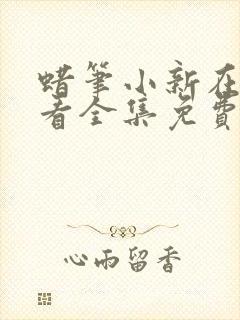 蜡筆小新在
看全集免費
心雨留香